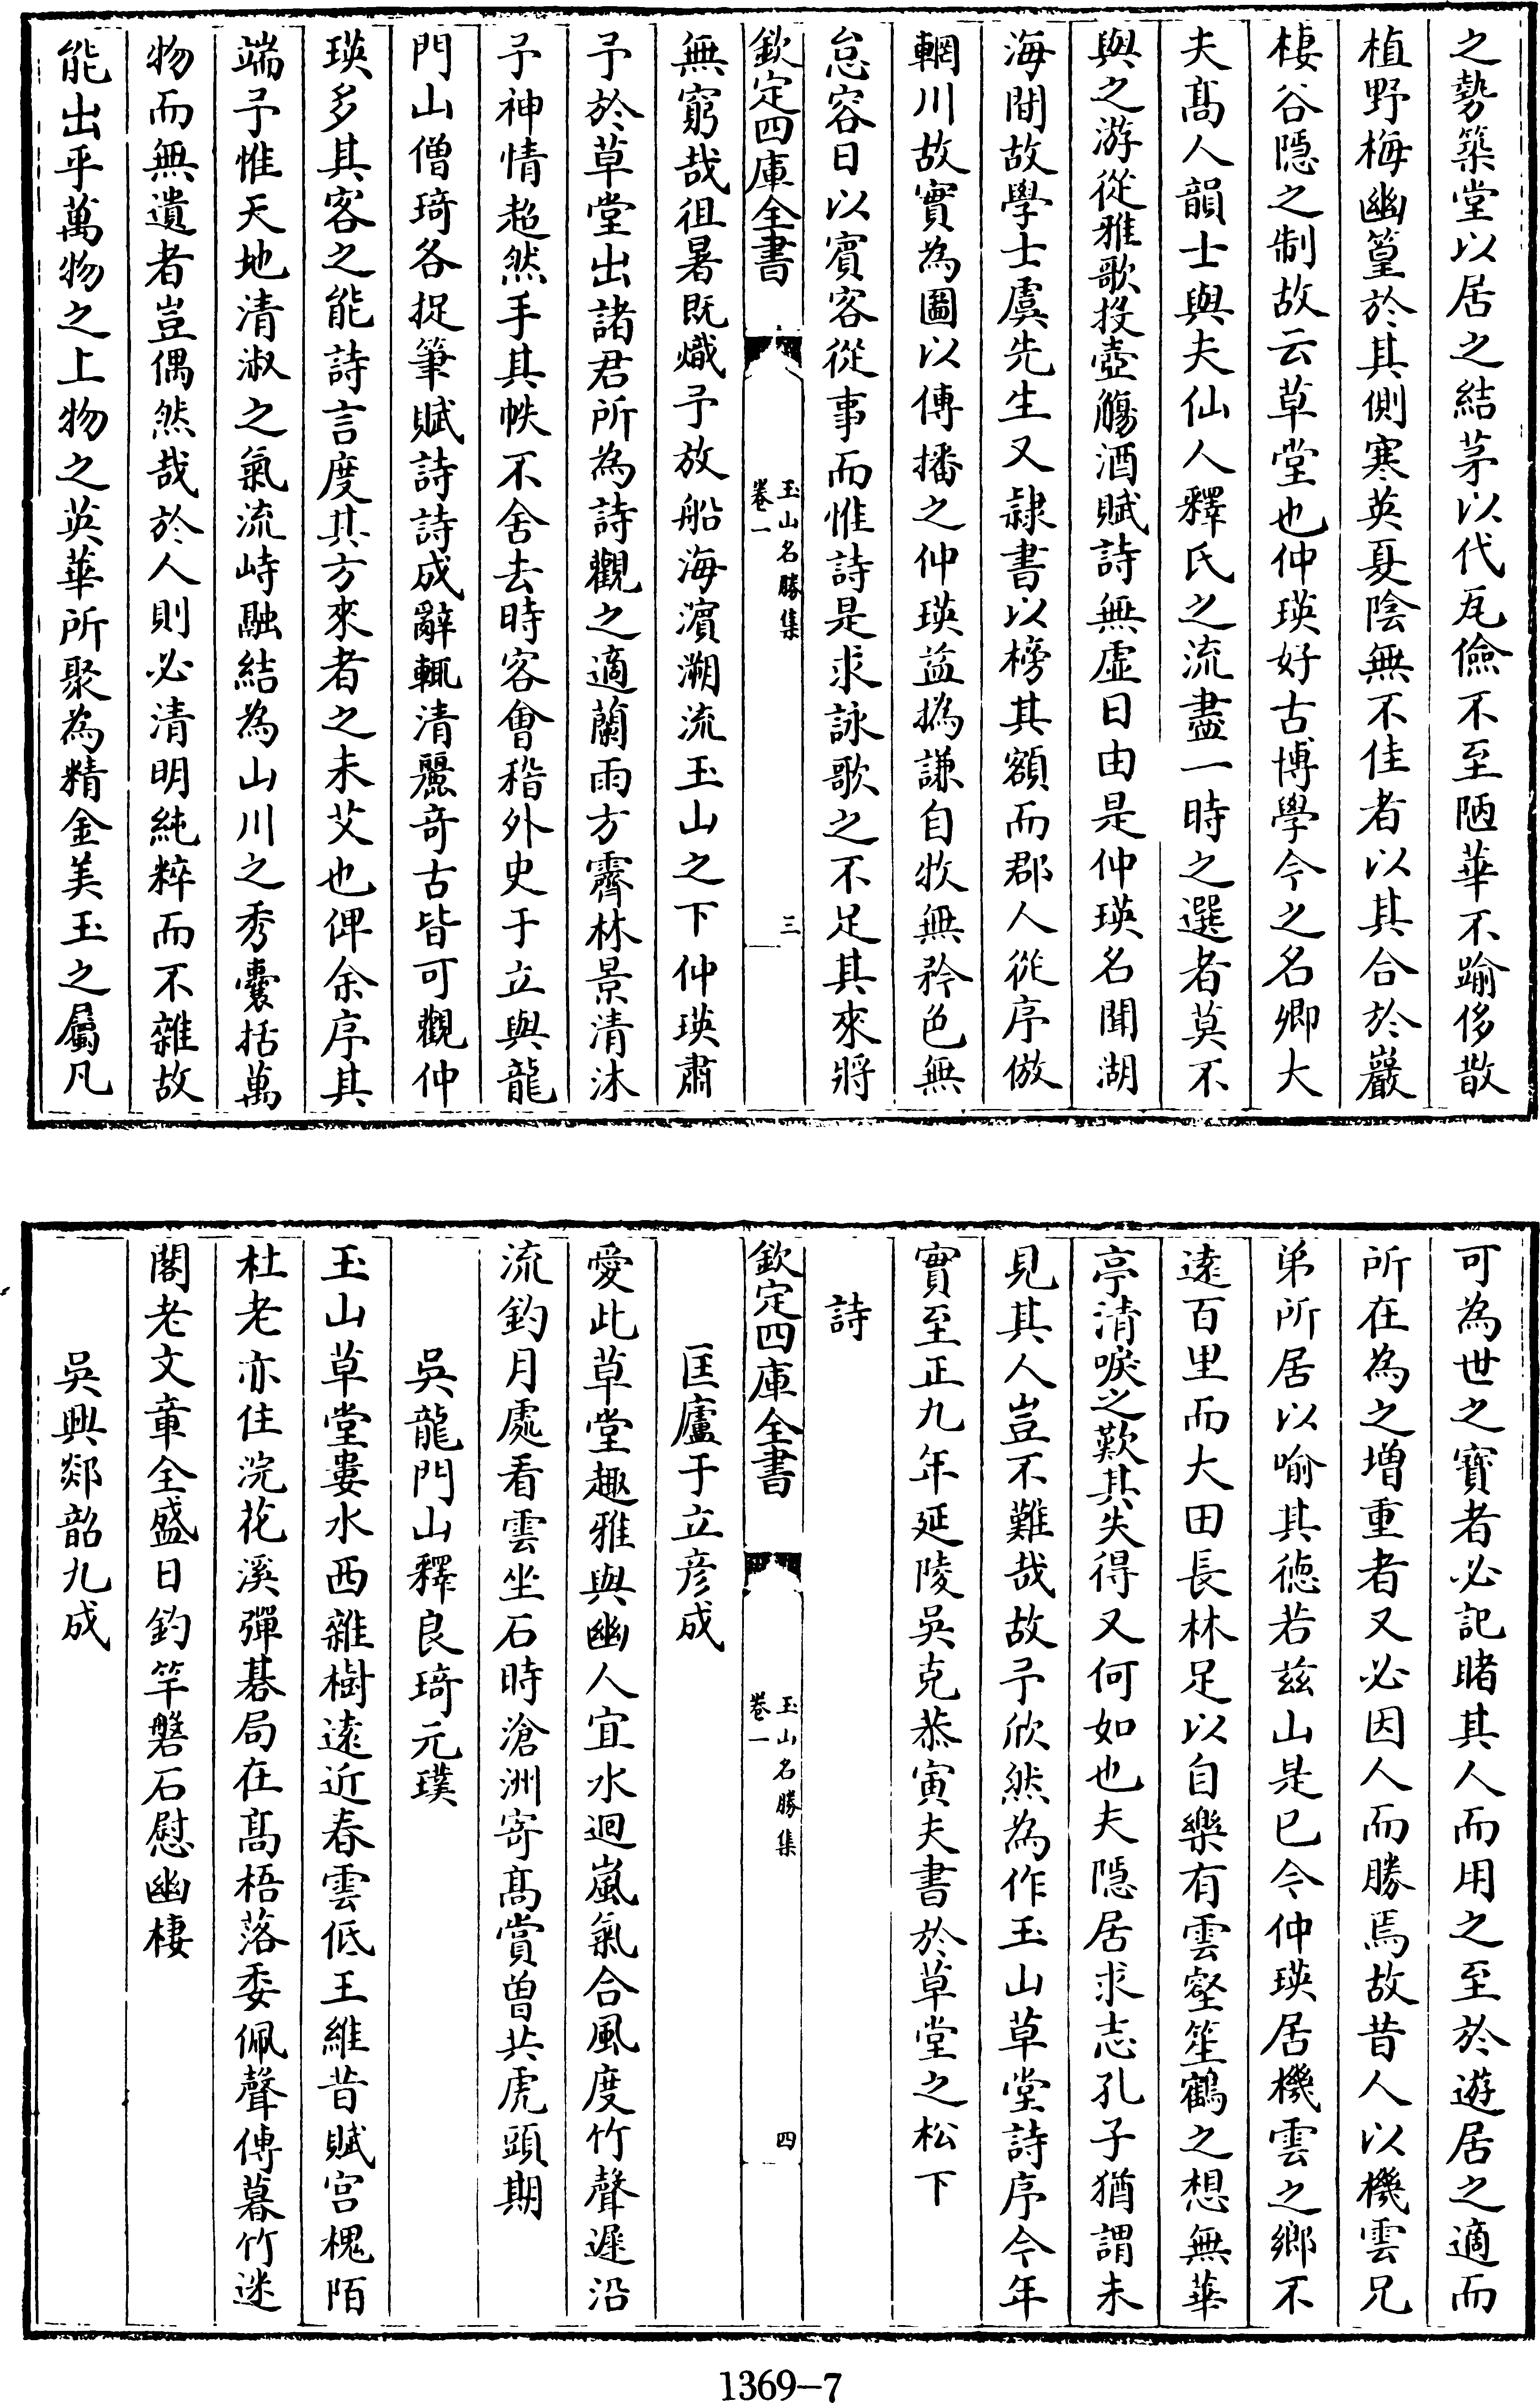 之勢築堂以居之結茅以代瓦儉不至陋華不踰侈散
植野梅幽篁於其側寒英夏陰無不佳者以其合於巖
棲谷隱之制故云草堂也仲瑛好古博學今之名卿大
夫髙人韻士與夫仙人釋氏之流盡一時之選者莫不
與之游從雅歌投壺觴酒賦詩無虛日由是仲瑛名聞湖
海間故學士虞先生又隷書以榜其額而郡人從序倣
輞川故實為圖以傳播之仲瑛益撝謙自牧無矜色無
怠容日以賓客從事而惟詩是求詠歌之不足其來將
欽定四庫全書
玉山名勝集
卷一
三
無窮哉徂暑既熾予放船海濵溯流玉山之下仲瑛肅
予於草堂出諸君所為詩觀之適蘭雨方霽林景清沐
予神情超然手其帙不舍去時客會稽外史于立與龍
門山僧琦各捉筆賦詩詩成辭輒清麗竒古皆可觀仲
瑛多其客之能詩言度其方來者之未艾也俾余序其
端予惟天地清淑之氣流峙融結為山川之秀囊括萬
物而無遺者豈偶然哉於人則必清明純粹而不雜故
能出乎萬物之上物之英華所聚為精金美玉之屬凡
可為世之寳者必記睹其人而用之至於遊居之適而
所在為之増重者又必因人而勝焉故昔人以機雲兄
弟所居以喻其徳若兹山是已今仲瑛居機雲之鄉不
遠百里而大田長林足以自樂有雲壑笙鶴之想無華
亭清唳之歎其失得又何如也夫隱居求志孔子猶謂未
見其人豈不難哉故予欣然為作玉山草堂詩序今年
實至正九年延陵吳克恭寅夫書於草堂之松下
詩
欽定四庫全書
玉山名勝集
卷一
四
匡廬于立彦成
愛此草堂趣雅與幽人宜水迴嵐氣合風度竹聲遲沿
流釣月處看雲坐石時滄洲寄髙賞曽共虎頭期
吳龍門山釋良琦元璞
玉山草堂婁水西雜樹遠近春雲低王維昔賦宫槐陌
杜老亦住浣花溪彈碁局在髙梧落委佩聲傳暮竹迷
閣老文章全盛日釣竿磐石慰幽棲
吳興郯韶九成
1369-7